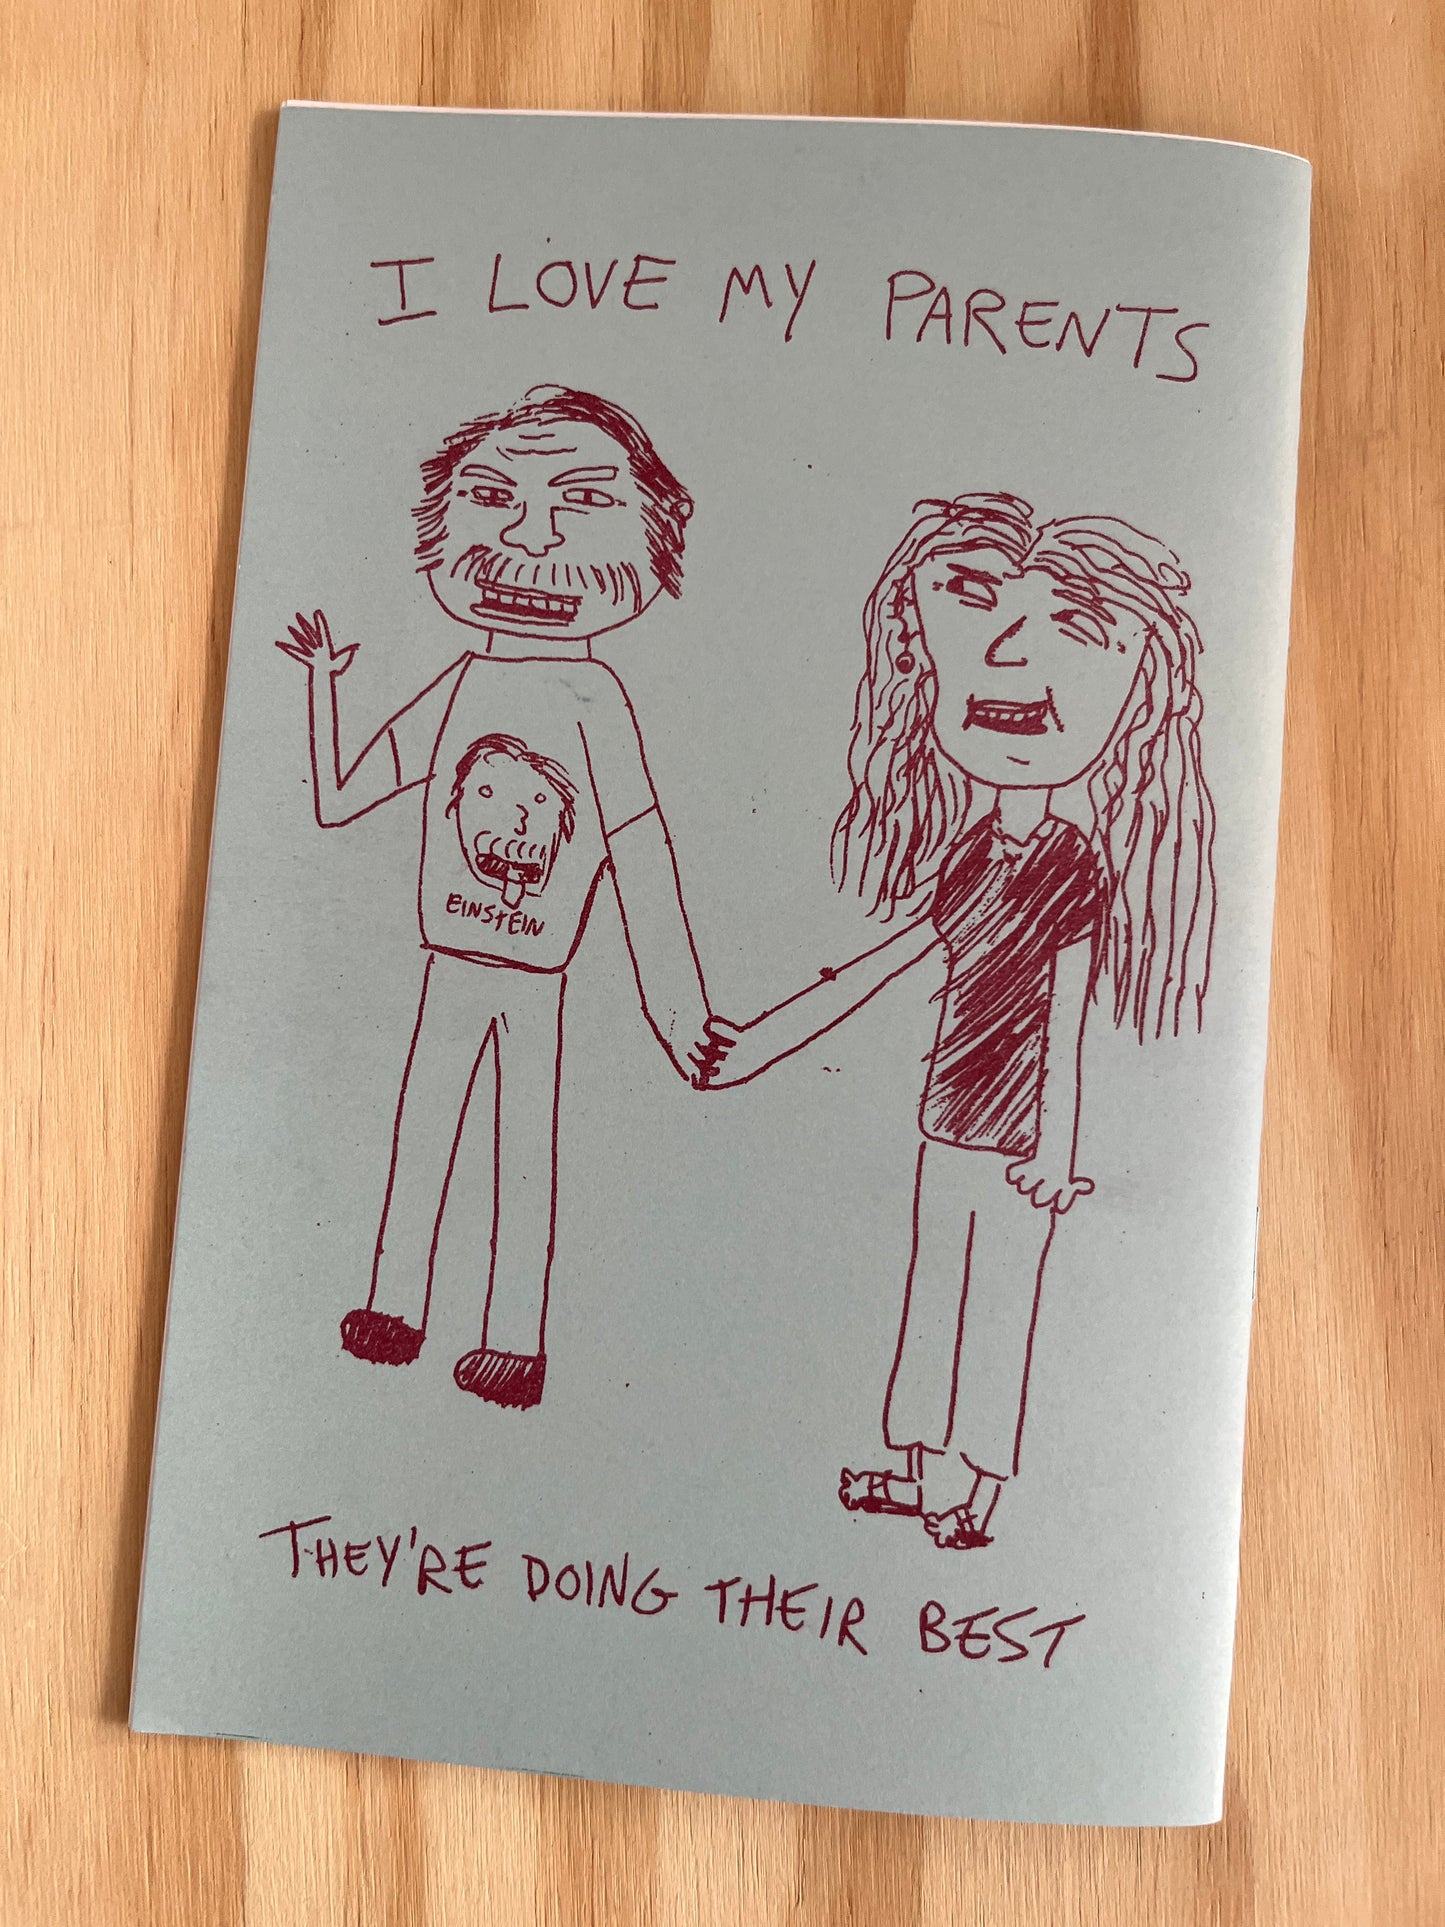 I LOVE MY PARENTS
EINSTEIN
THEY'RE DOING THEIR BEST